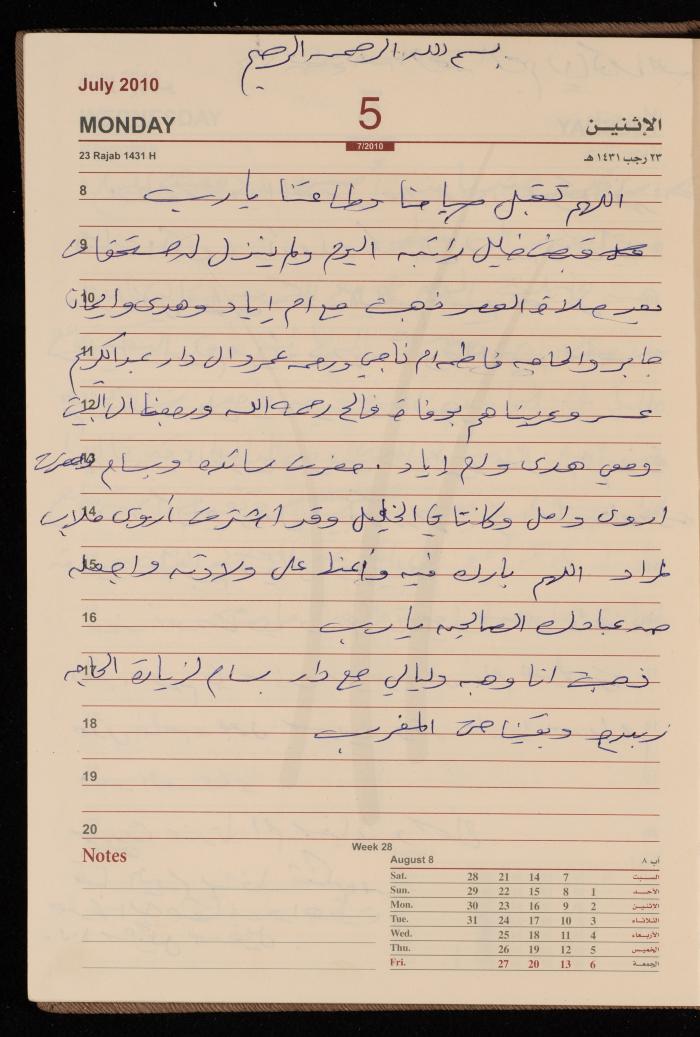 بسم الله الرحمن الرحيم
July 2010
MONDAY
5
7/2010
الإثنين
23 Rajab 1431 H
٢٣ رجب ١٤٣١ هـ
8 اللهم تقبل صيامنا وطاعتنا يا رب
9 قبض خليل راتبه اليوم ولم ينزل له
10 بعد صلاة العصر ذهبت مع ام إياد وهدى وايمان
11 جابر والحاجه فاطمه ام ناجي ورحمه عمر وال دار عبدالكريم
12 وعزيناهم بوفاة فالح رحمه الله ورجعنا ال البيت
13 ومعي هدى وام إياد . حضرت سائده وبسام
14 اروى وامل وكانتا في الخليل وقد اشترت أروى ملابس
15 لمراد اللهم بارك فيه وأعنها على ولادته واجعله
16 من عبادك الصالحين يا رب
17 ذهبت انا وليالي مع دار بسام لزيارة الحاجه
18 وبقينا حتى المغرب
19
20
Notes
Week 28
August 8
آب ٨
Sat. 28 21 14 7 السبت
Sun. 29 22 15 8 1 الأحد
Mon. 30 23 16 9 2 الاثنين
Tue. 31 24 17 10 3 الثلاثاء
Wed. 25 18 11 4 الأربعاء
Thu. 26 19 12 5 الخميس
Fri. 27 20 13 6 الجمعة